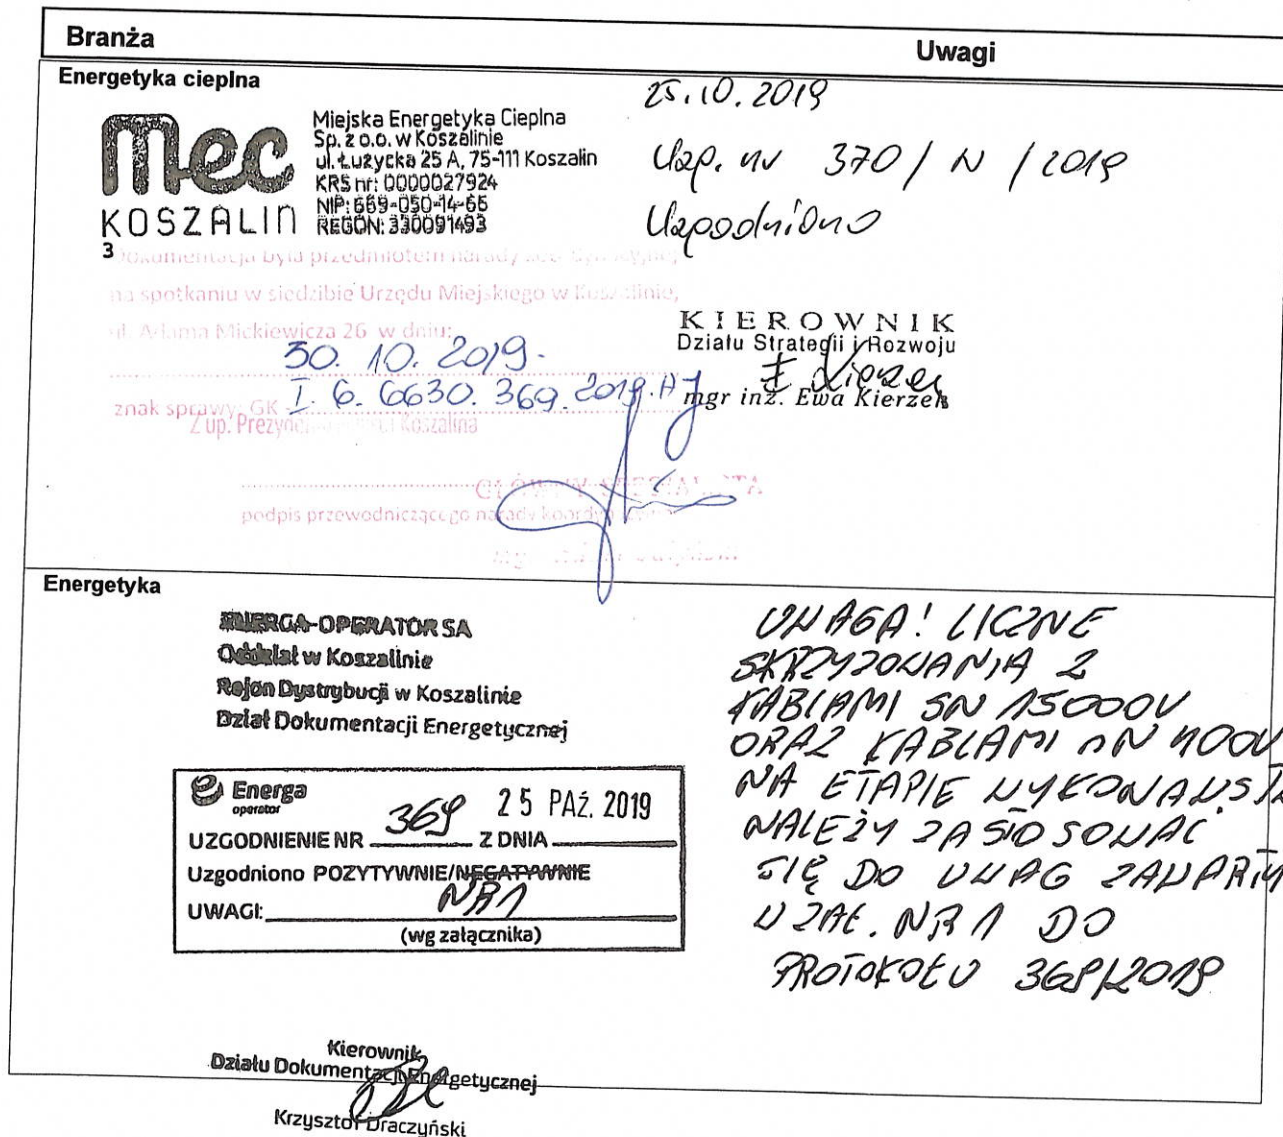 Branża
Uwagi
Energetyka cieplna
mec
KOSZALIN
Miejska Energetyka Cieplna
Sp. z o.o. w Koszalinie
ul. Łużycka 25 A, 75-111 Koszalin
KRS nr: 0000027924
NIP: 669-050-14-66
REGON: 330091493
25.10.2019
Uzg. nr 370 / N / 2019
Uzgodniono
3
Dokumentacja była przedmiotem narady
na spotkaniu w siedzibie Urzędu Miejskiego w Koszalinie,
ul. Adama Mickiewicza 26 w dniu:
30. 10. 2019.
znak sprawy: GK I. 6. 6630. 369. 2019. AJ
Z up. Prezydenta Koszalina
GŁÓWNY SPECJALISTA
podpis przewodniczącego narady
mgr
KIEROWNIK
Działu Strategii i Rozwoju
mgr inż. Ewa Kierzek
Energetyka
ENERGA-OPERATOR SA
Oddział w Koszalinie
Rejon Dystrybucji w Koszalinie
Dział Dokumentacji Energetycznej
Energa
operator
UZGODNIENIE NR 369 Z DNIA 25 PAŹ. 2019
Uzgodniono POZYTYWNIE/NEGATYWNIE
UWAGI: NR 1
(wg załącznika)
UWAGA! LICZNE
SKRZYŻOWANIA Z
KABLAMI SN 15000V
ORAZ KABLAMI nN 400V
NA ETAPIE
NALEŻY ZASTOSOWAĆ
SIĘ DO UWAG
W ZAŁ. NR 1 DO
PROTOKOŁU 369/2019
Kierownik
Działu Dokumentacji Energetycznej
Krzysztof Draczyński